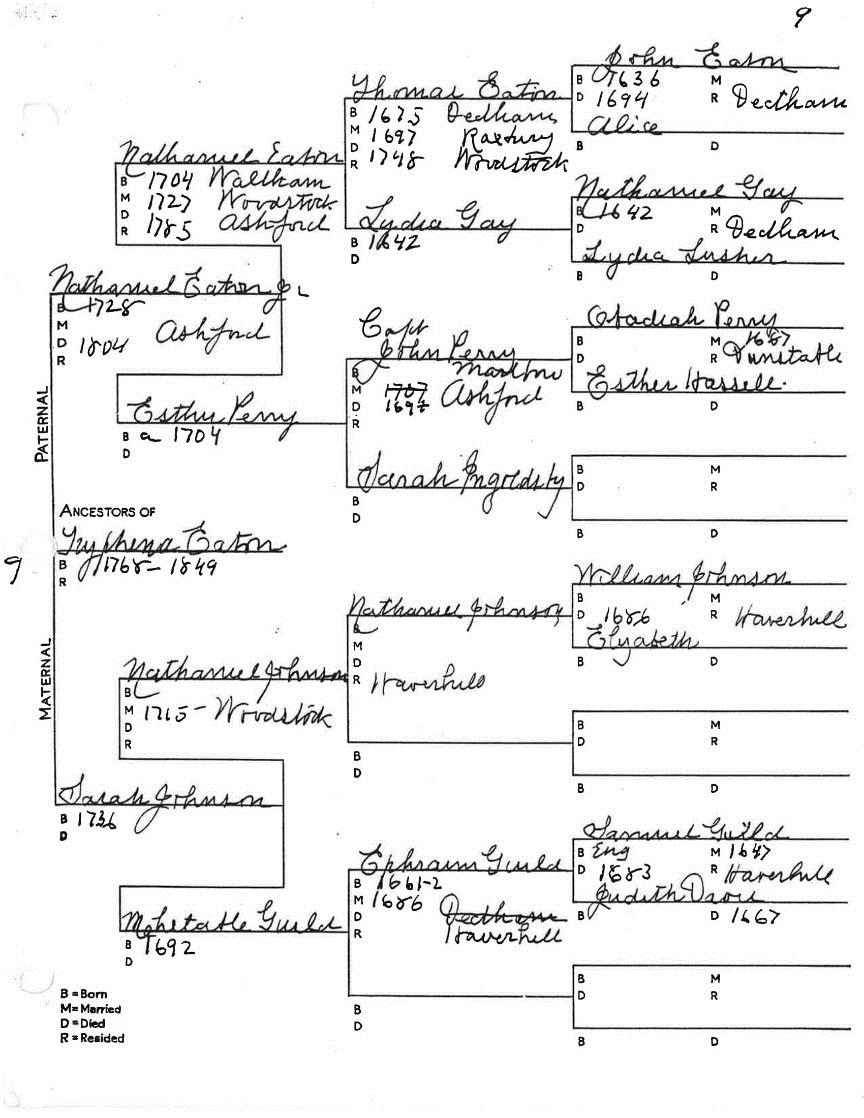 9
John Eaton
B 1636 M
D 1694 R Dedham
Alice
B D
Thomas Eaton
B 1675 Dedham
M 1697 Roxbury
D 1748 Woodstock
R
Nathaniel Eaton
B 1704 Waltham
M 1727 Woodstock
D 1785 Ashford
R
Nathaniel Gay
B 1642 M
D R Dedham
Lydia Lusher
B D
Lydia Gay
B 1642
D
Nathaniel Eaton Jr
B 1728
M
D 1804 Ashford
R
Obadiah Perry
B M 1687
D R Dunstable
Esther Hassell.
B D
Capt
John Perry
B Marlboro
M 1707 Ashford
D 1697
R
Esther Perry
B a 1704
D
PATERNAL
Sarah Ingoldsby
B
D
B M
D R
B D
ANCESTORS OF
Tryphena Eaton
9
B 1768 - 1849
R
William Johnson
B M
D 1686 R Haverhill
Elizabeth
B D
Nathaniel Johnson
B
M
D
R Haverhill
B
D
Nathaniel Johnson
B
M 1715 - Woodstock
D
R
MATERNAL
B M
D R
B D
Sarah Johnson
B 1736
D
Samuel Guild
B Eng M 1647
D 1683 R Haverhill
Judith Davie
B D 1667
Ephraim Guild
B 1661-2
M 1686 Dedham
D Haverhill
R
Mehetable Guild
B 1692
D
B
D
B M
D R
B D
B = Born
M = Married
D = Died
R = Resided